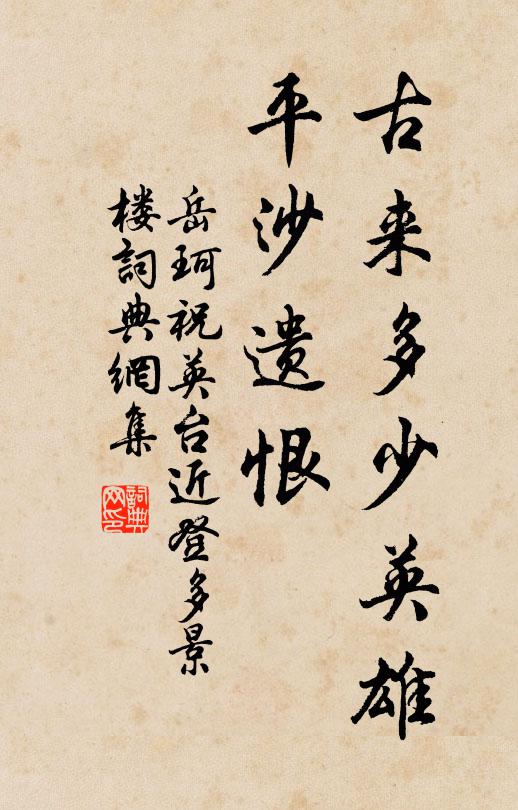 古来多少英雄
平沙遗恨
岳珂祝英台近登多景
楼詞典網集
詞典
网印